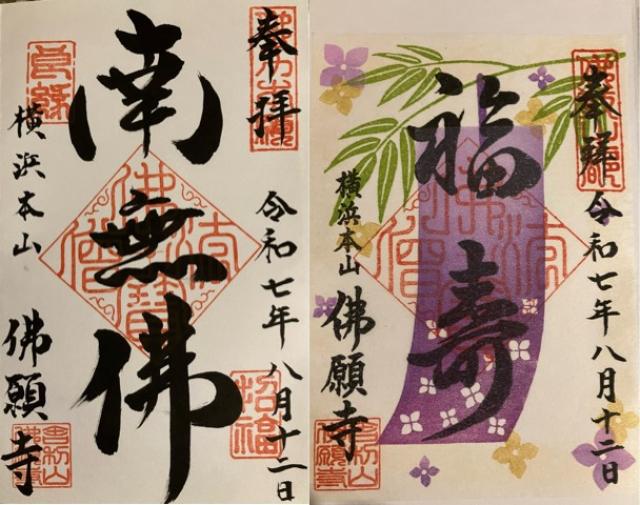 奉拝
令和七年八月十二日
南無佛
招福
横浜本山
佛願寺
奉拝
令和七年八月十二日
福寿
横浜本山
佛願寺